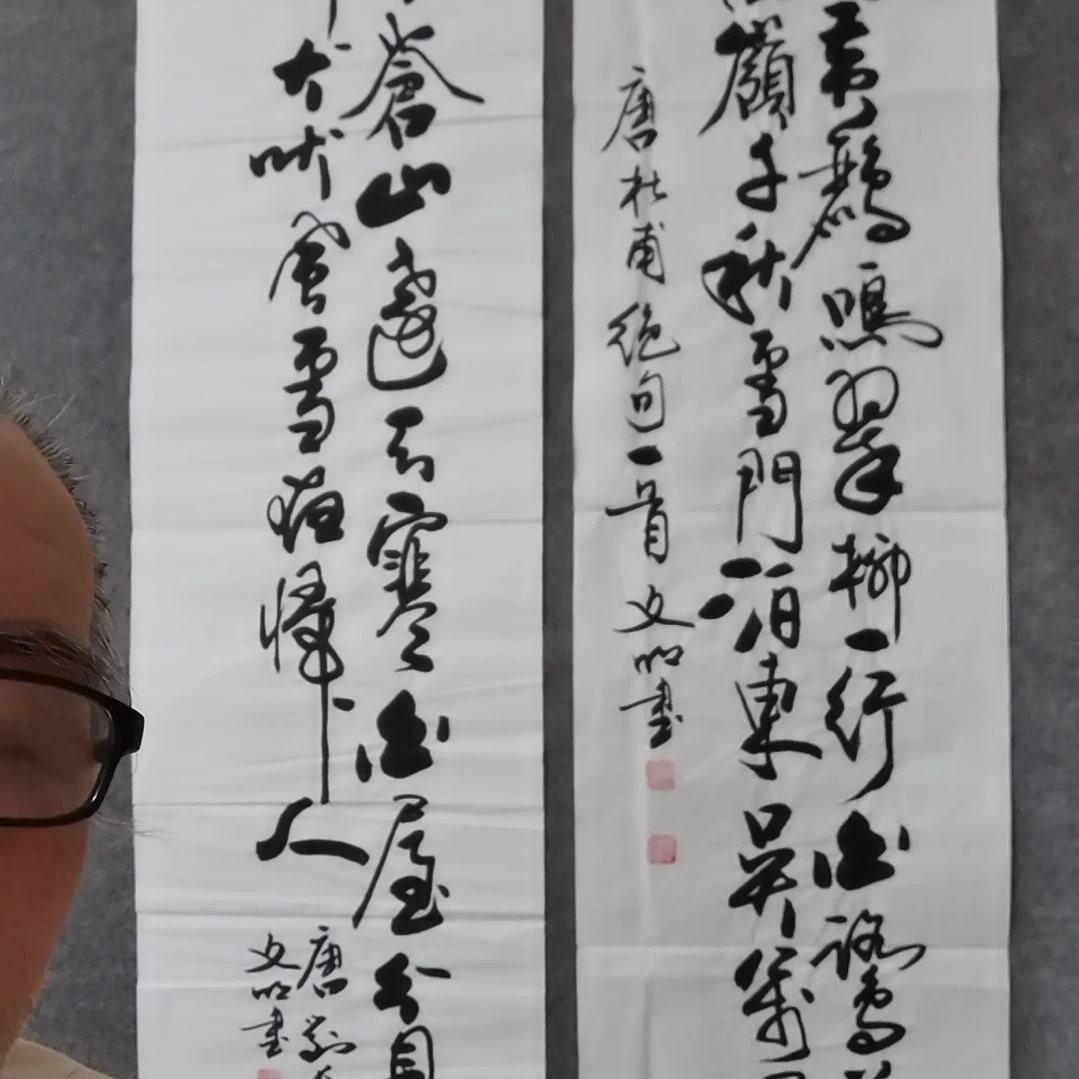 黄鸝鳴翠柳一行白鷺
嶺千秋雪門泊東吳萬
唐杜甫絕句一首文書
蒼山遠天寒白屋貧
犬吠風雪夜歸人
唐劉
文書